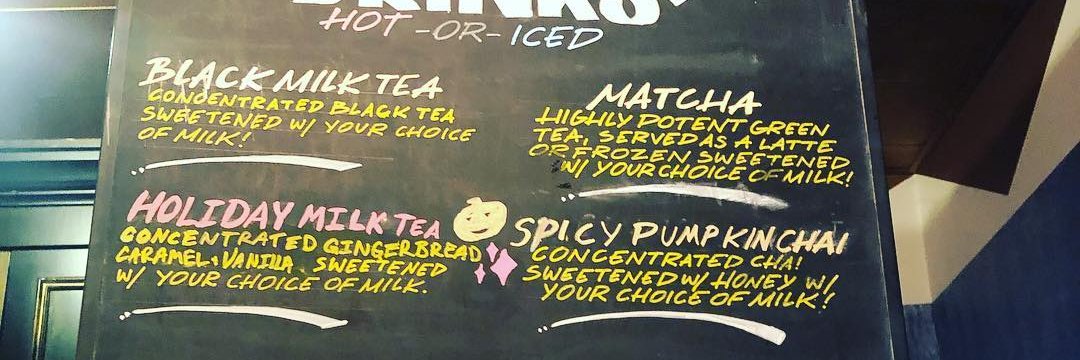 DRINKS
HOT -OR- ICED
BLACK MILK TEA
CONCENTRATED BLACK TEA
SWEETENED W/ YOUR CHOICE
OF MILK!
MATCHA
HIGHLY POTENT GREEN
TEA, SERVED AS A LATTE
OR FROZEN SWEETENED
W/ YOUR CHOICE OF MILK!
HOLIDAY MILK TEA
CONCENTRATED GINGERBREAD
CARAMEL, VANILLA SWEETENED
W/ YOUR CHOICE OF MILK.
SPICY PUMPKIN CHAI
CONCENTRATED CHAI
SWEETENED W/ HONEY W/
YOUR CHOICE OF MILK!